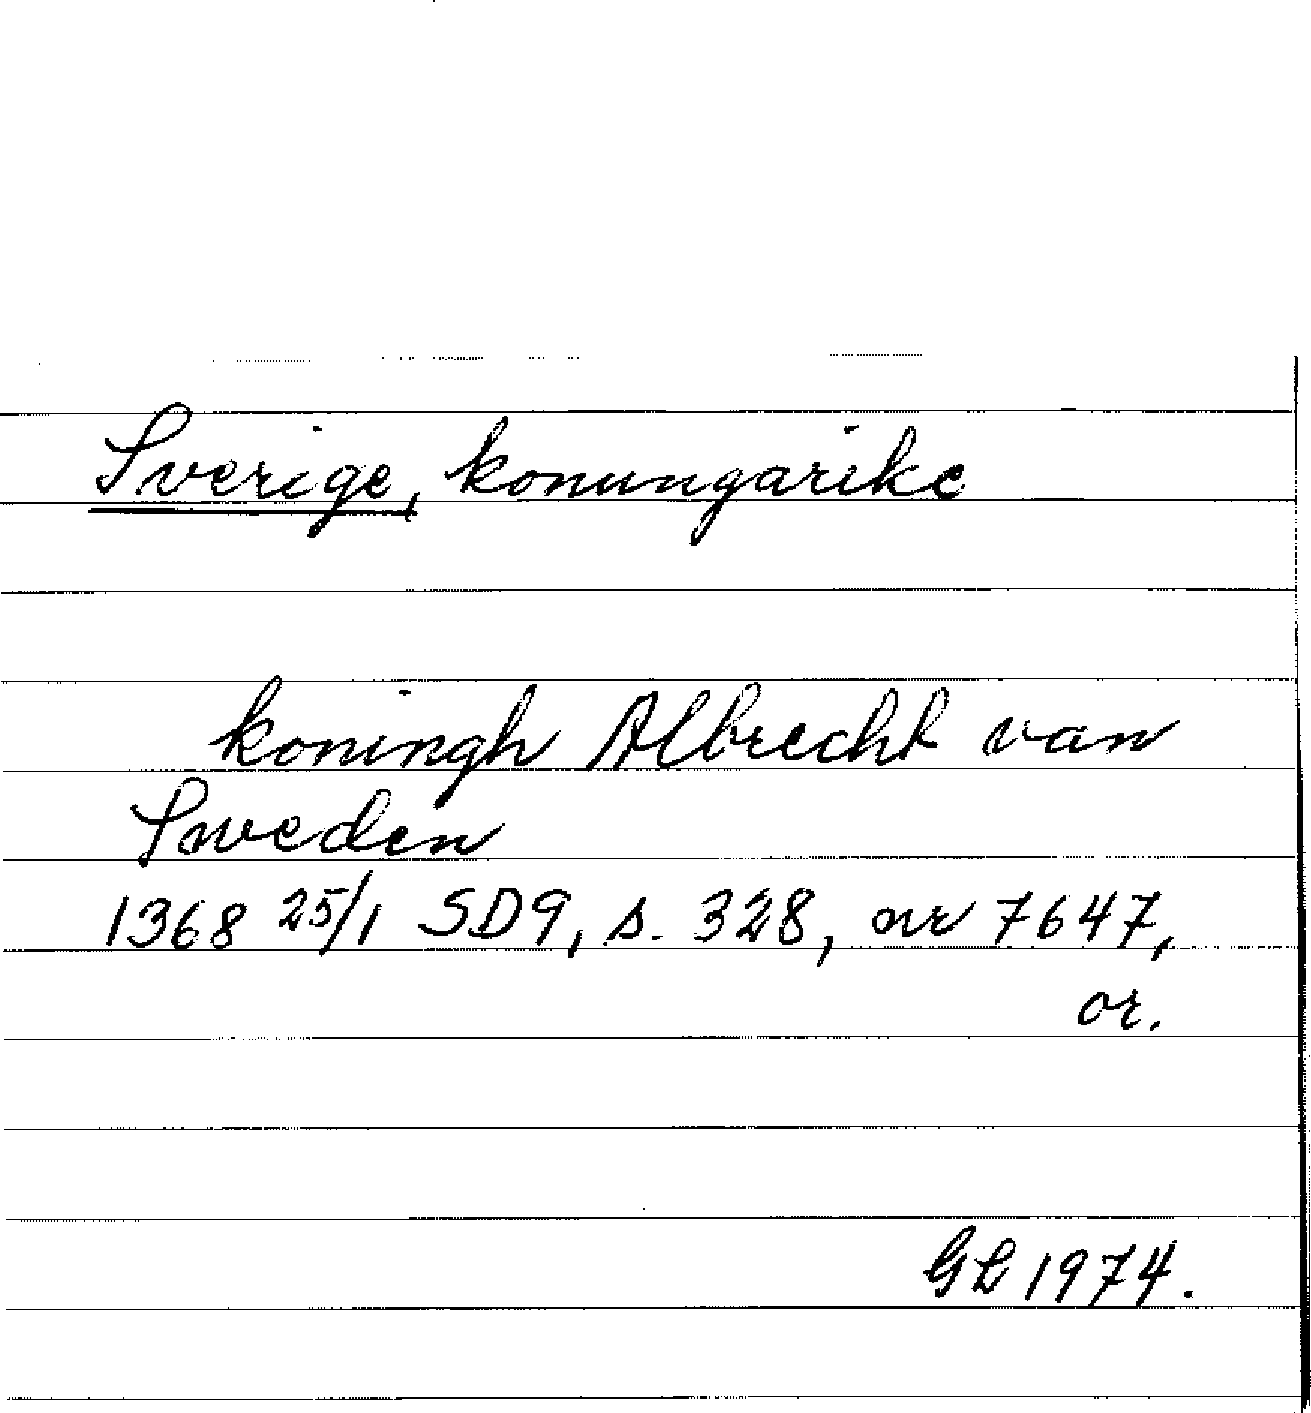 Sverige, konungarike
koningh Albrecht van
Sweden
1368 25/1 SD9, s. 328, nr 7647,
or.
GL 1974.